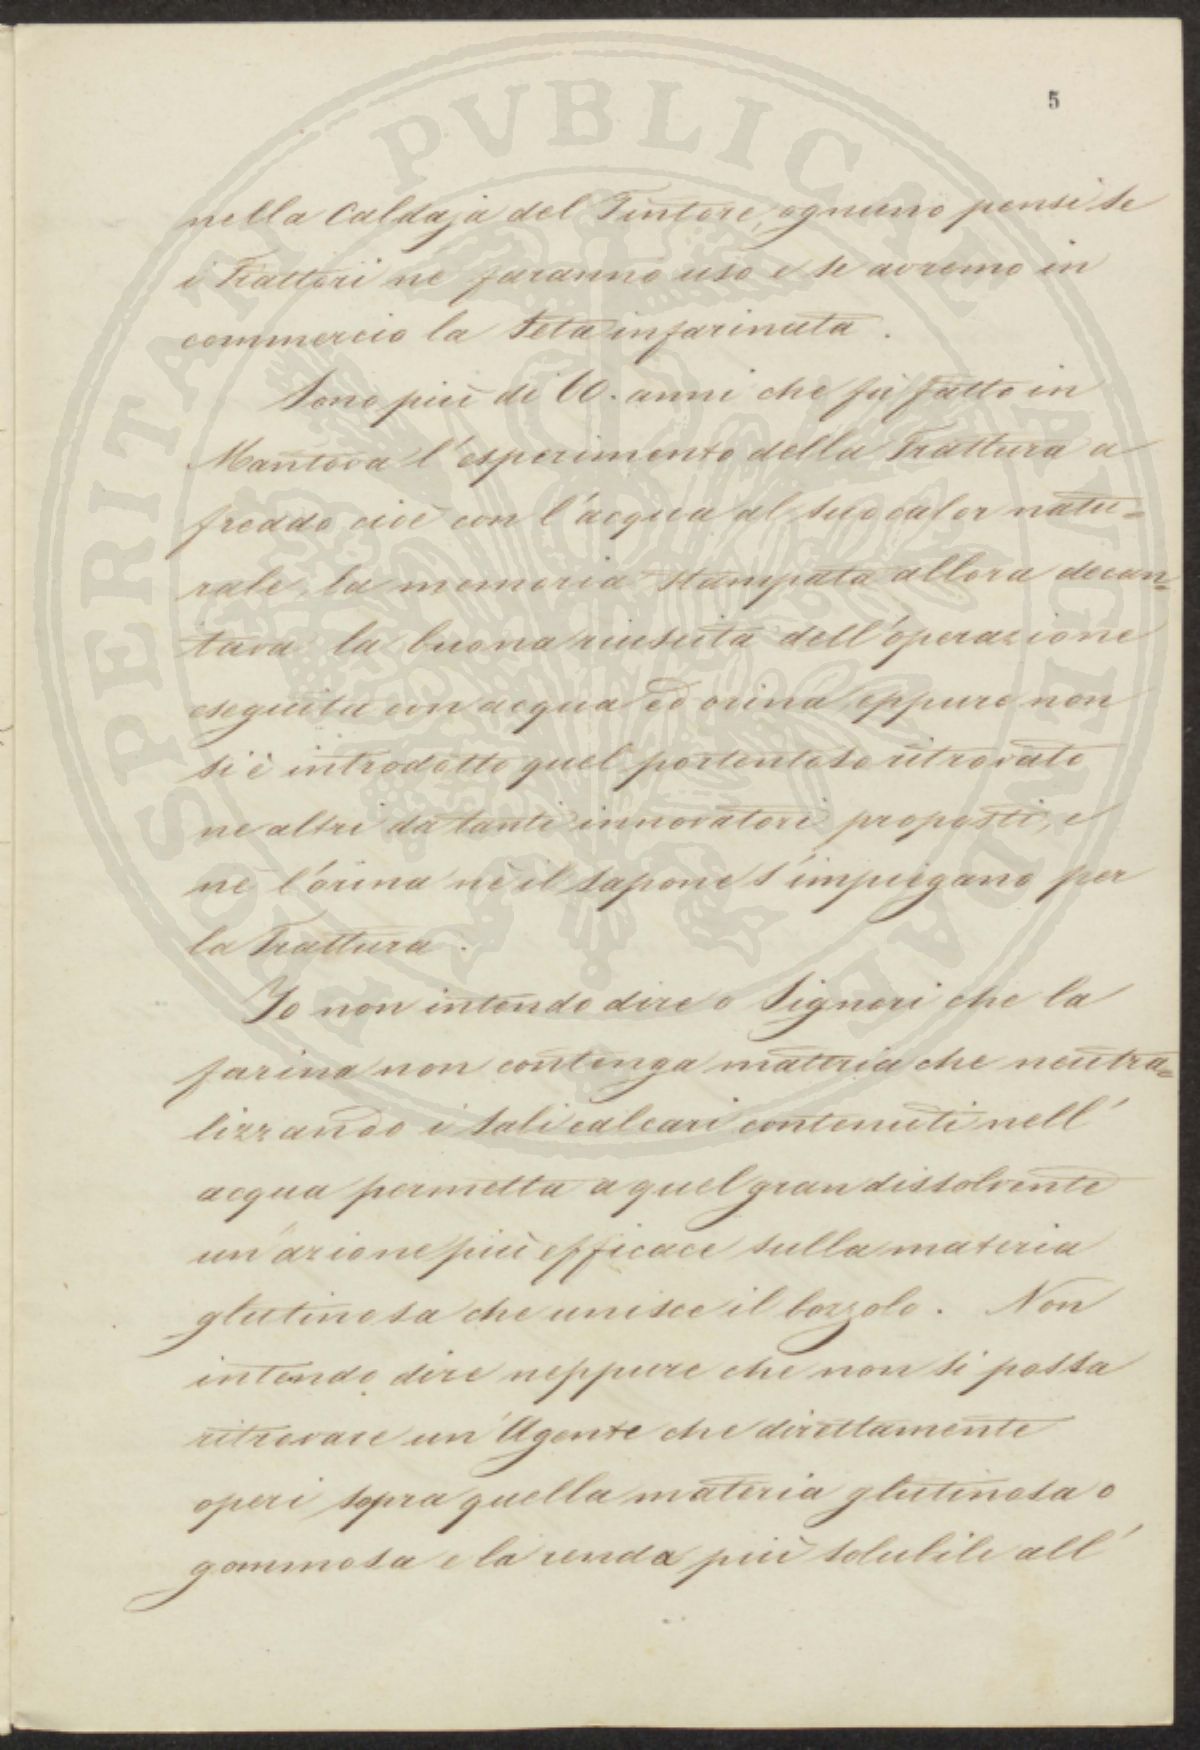 5
nella Caldaja del Tintore, ognuno pensi se
i Trattori ne faranno uso e se avremo in
commercio la Seta infarinata.
Sono più di 60. anni che fù fatto in
Mantova l'esperimento della Trattura a
freddo cioè con l'acqua al suo calor natu=
rale, la memoria stampata allora decan=
tava la buona riuscita dell'operazione
eseguita con acqua ed orina, eppure non
si è introdotto quel portentoso ritrovato
ne altri da tanti innovatori proposti, e
nè l'orina nè il sapone s'impiegano per
la Trattura.
Io non intendo dire o Signori che la
farina non contenga materia che neutra=
lizzando i sali calcari contenuti nell'
acqua permetta a quel gran dissolvente
un'azione più efficace sulla materia
glutinosa che unisce il bozzolo. Non
intendo dire neppure che non si possa
ritrovare un'Agente che direttamente
operi sopra quella materia glutinosa o
gommosa e la renda più solubile all'
PROSPERITATI PVBLICAE AVGENDAE